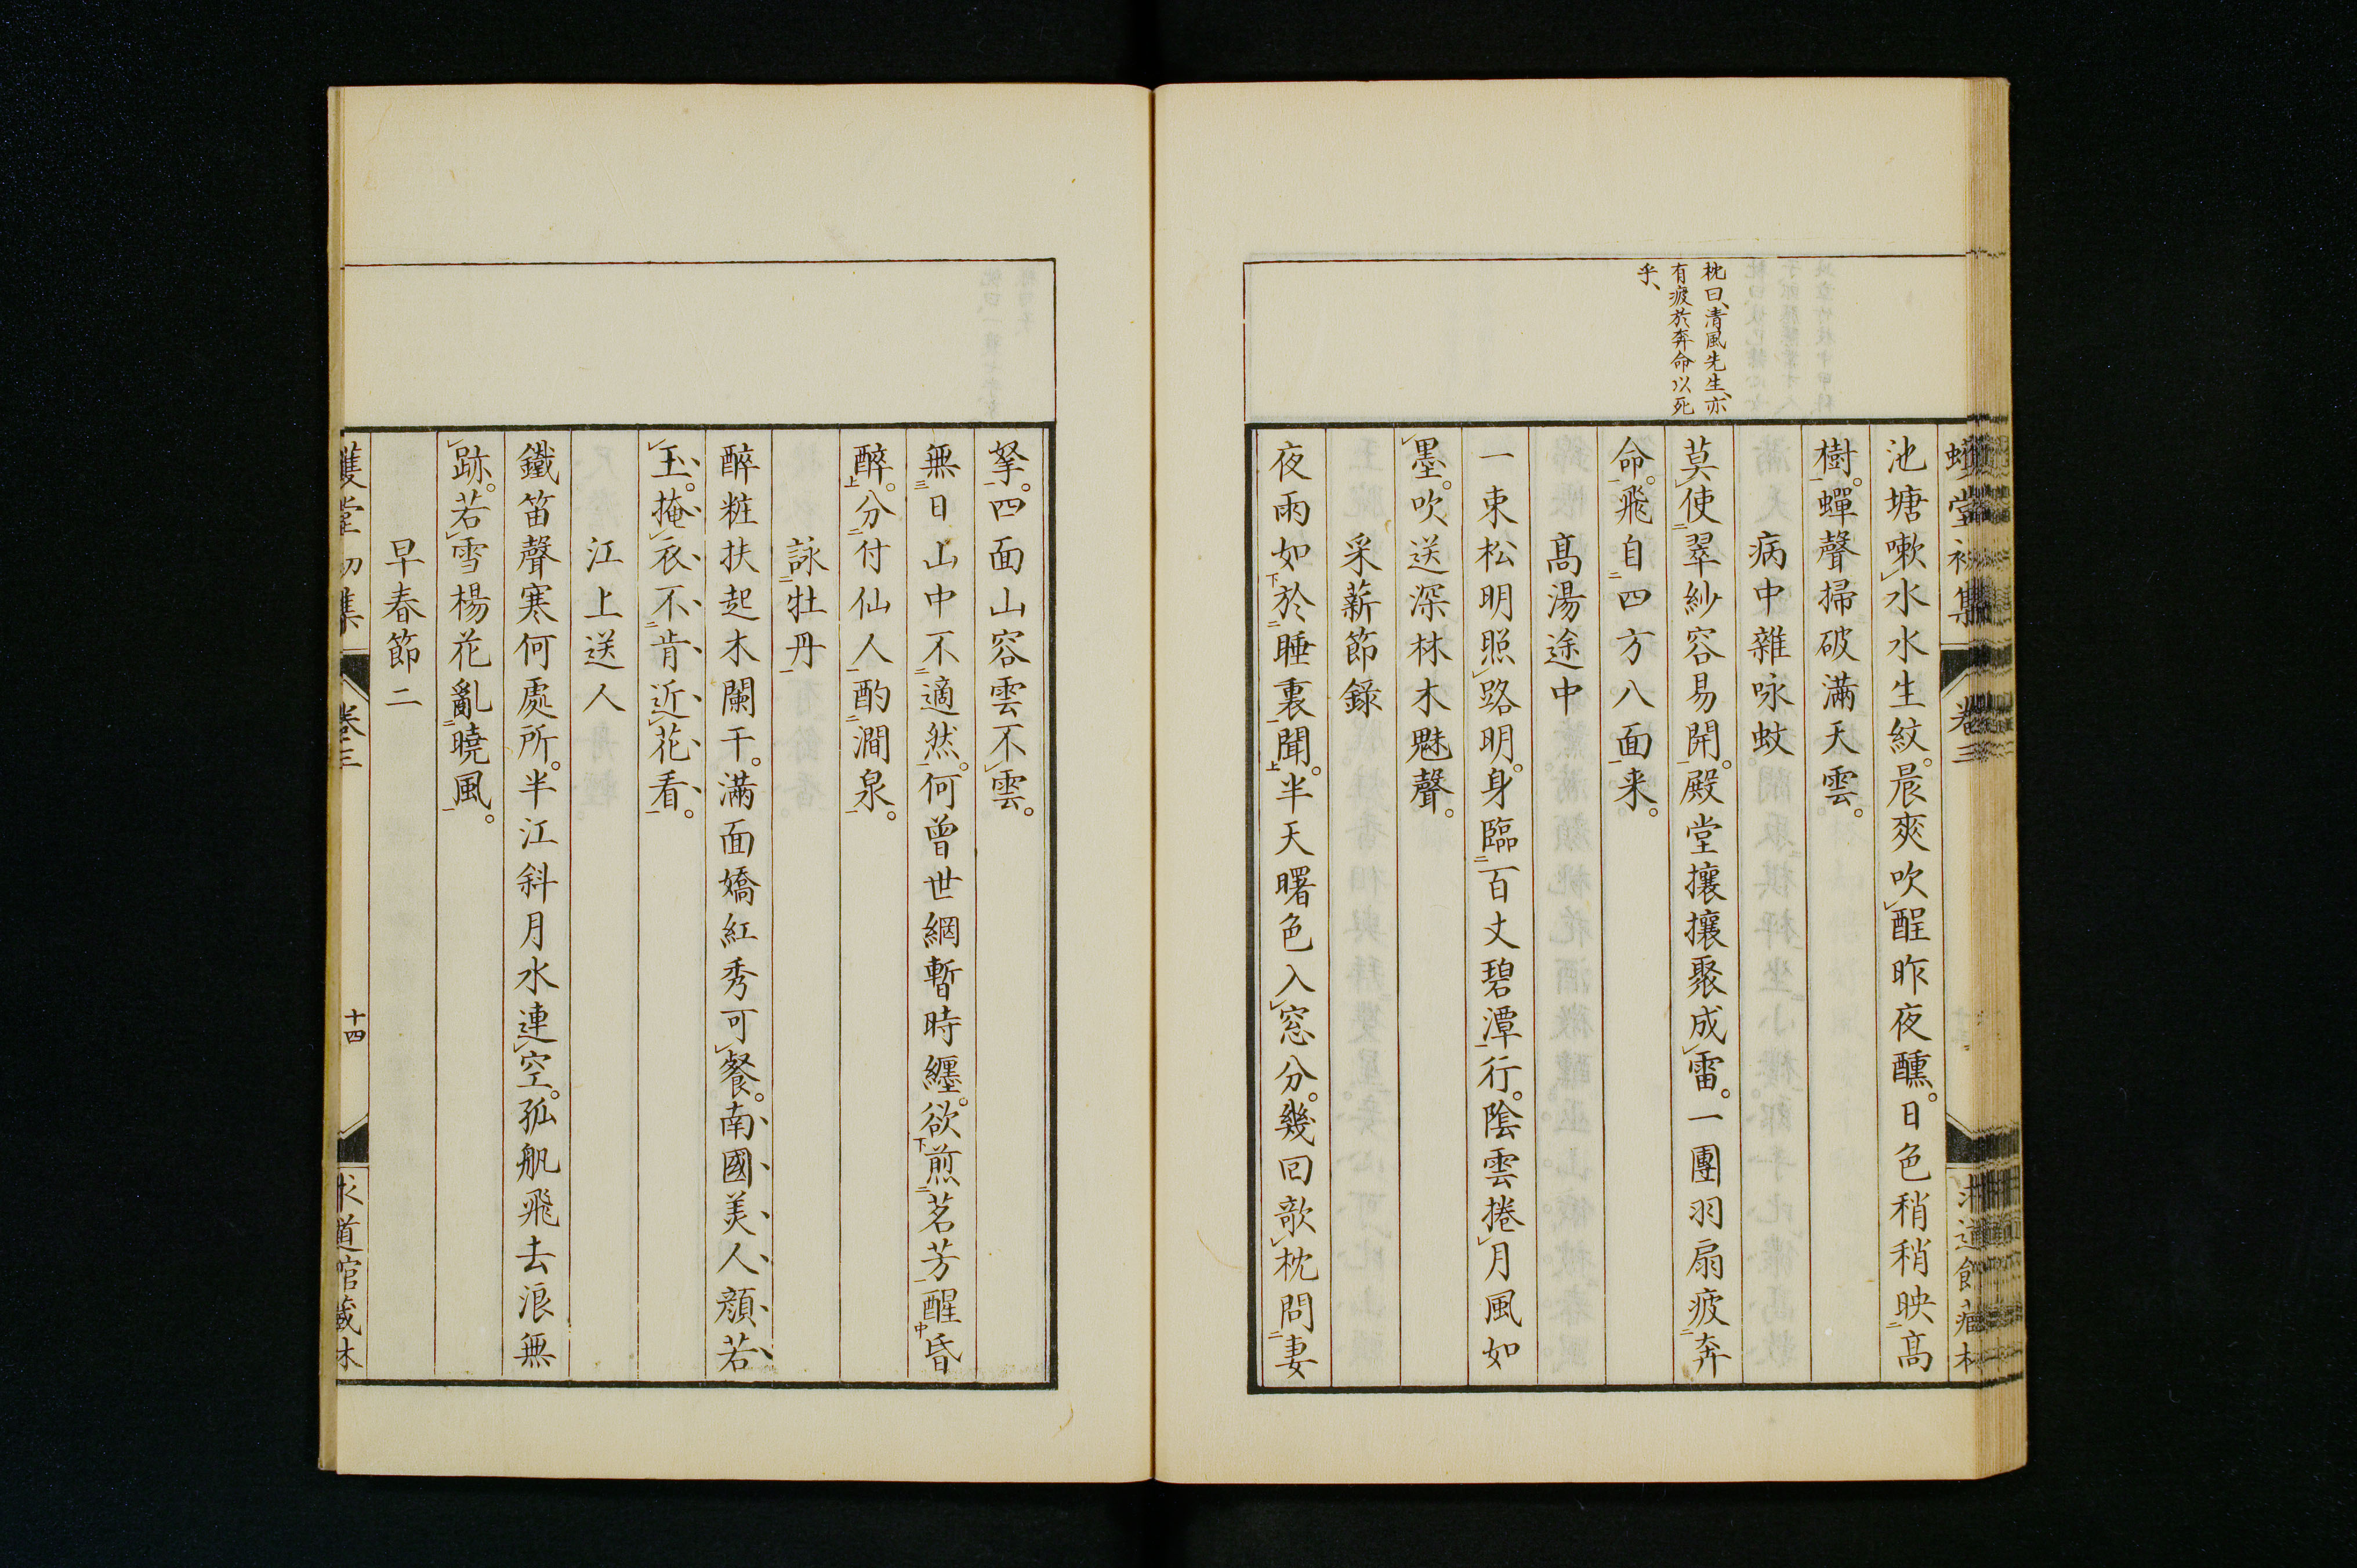 枕曰、清風先生、亦
有疲於奔命以死
乎、
池塘嗽水水生紋。晨爽吹醒昨夜醺。日色稍稍映髙
樹。蟬聲掃破滿天雲。
病中雜咏蚊
莫使翠紗容易開。殿堂攘攘聚成雷。一團羽扇疲奔
命。飛自四方八面来。
髙湯途中
一束松明照路明。身臨百丈碧潭行。陰雲捲月風如
墨。吹送深林木魅聲。
采薪節錄
夜雨如於睡裏聞。半天曙色入窓分。幾回欹枕問妻
拏。四面山容雲不雲。
無日山中不適然。何曾世網暫時纏。欲煎茗芳醒昏
醉。分付仙人酌澗泉。
詠牡丹
醉粧扶起木闌干。滿面嬌紅秀可餐。南國美人顔若
玉。掩衣不肯近花看。
江上送人
鐵笛聲寒何處所。半江斜月水連空。孤帆飛去浪無
跡。若雪楊花亂曉風。
早春節二
卷三
十四